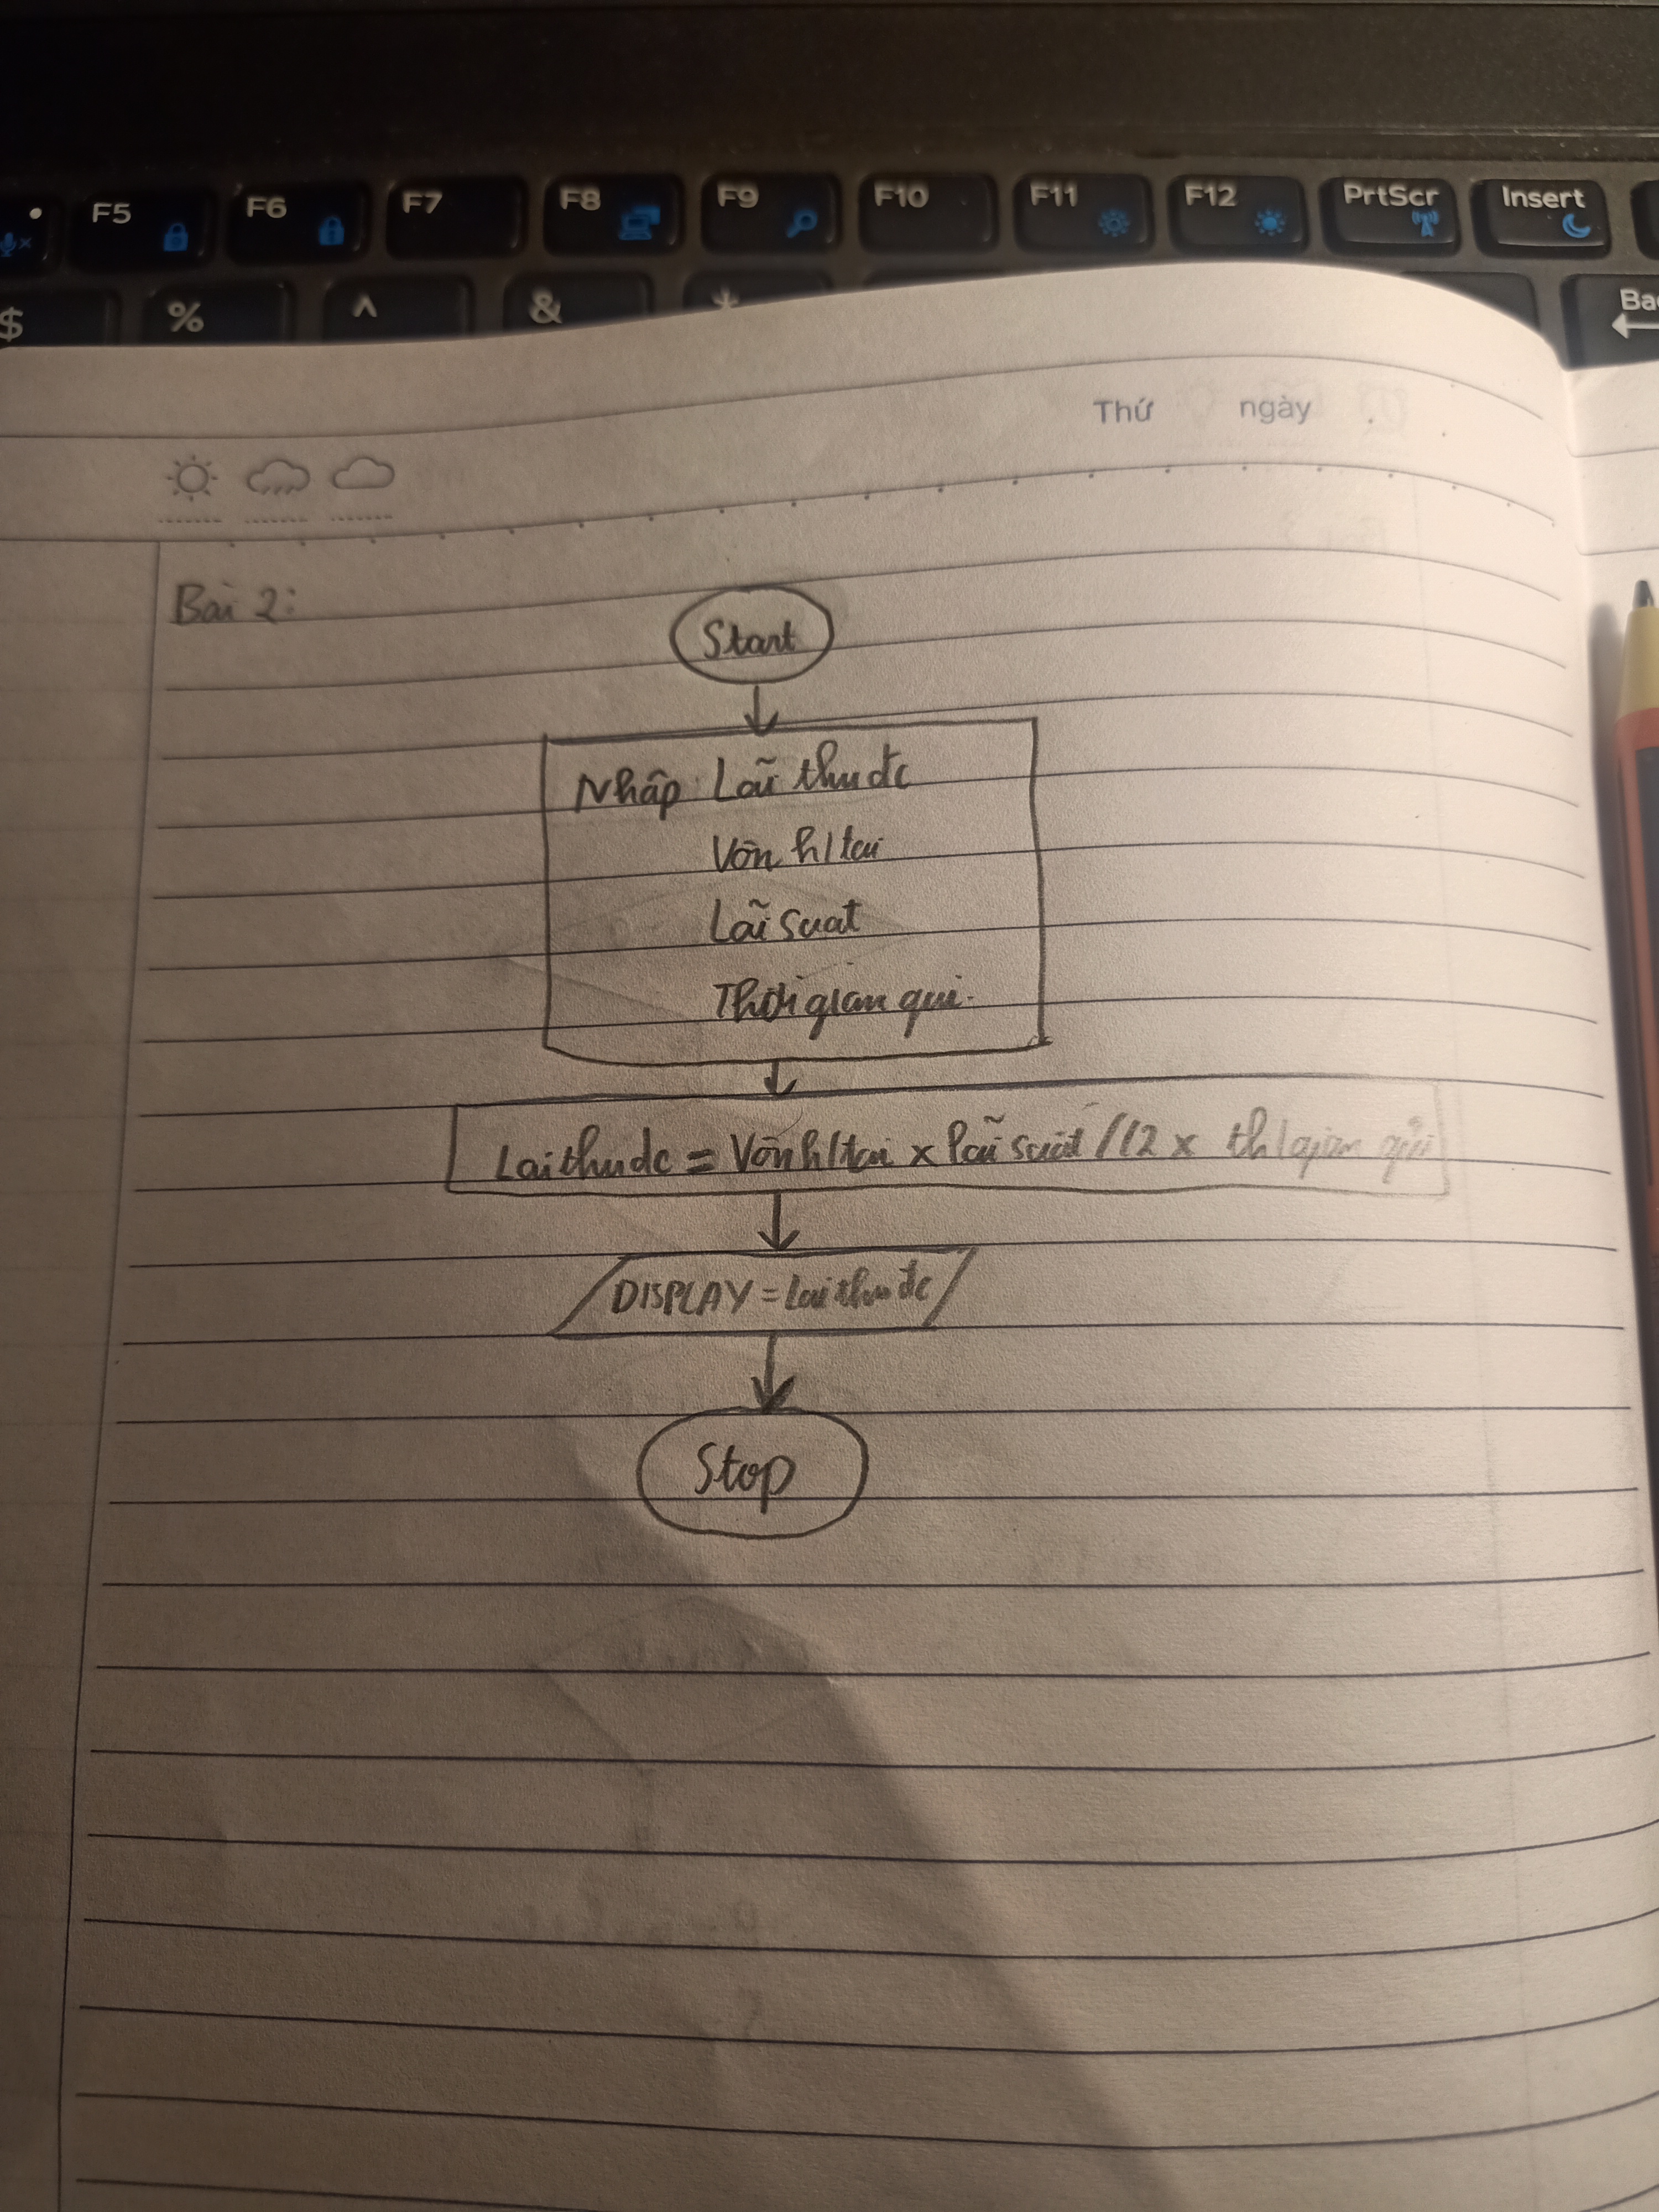 F5 F6 F7 F8 F9 F10 F11 F12 PrtScr Insert
$ % ^ & * Ba
Thứ ngày
Bài 2:
Start
Nhập: Lãi thuđc
Vốn h/tại
Lãi suat
Thời gian gưi.
Lai thuđc = Vốn h/tại x lãi suất /12 x th/gian gửi
DISPLAY = Lai thu đc
Stop